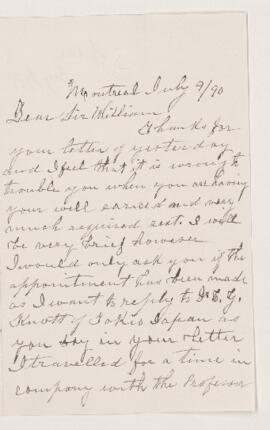 Montreal July 9/90
Dear Sir William
Thanks for
your letter of yesterday
and I feel that it is wrong to
trouble you when you are having
your well earned and very
much required rest. I will
be very brief however
I would only ask you if the
appointment has been made
as I want to reply to Dr. C. G.
Knott of Tokio Japan as
you say in your letter
I travelled for a time in
company with the Professor